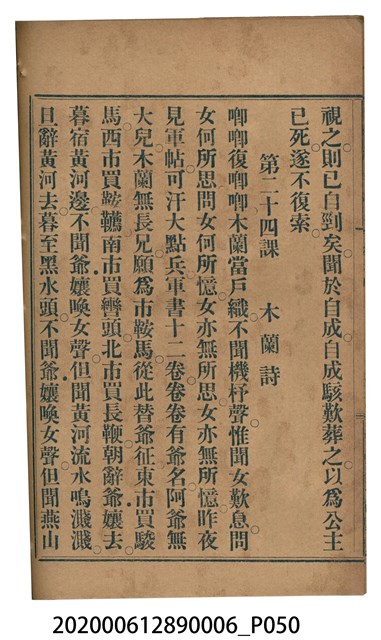 視之則已自剄矣聞於自成自成駭歎葬之以爲公主
已死遂不復索
第二十四課 木蘭詩
唧唧復唧唧木蘭當戶織不聞機杼聲惟聞女歎息問
女何所思問女何所憶女亦無所思女亦無所憶昨夜
見軍帖可汗大點兵軍書十二卷卷卷有爺名阿爺無
大兒木蘭無長兄願爲市鞍馬從此替爺征東市買駿
馬西市買鞍韉南市買轡頭北市買長鞭朝辭爺孃去
暮宿黃河邊不聞爺孃喚女聲但聞黃河流水鳴濺濺
旦辭黃河去暮至黑水頭不聞爺孃喚女聲但聞燕山
202000612890006_P050